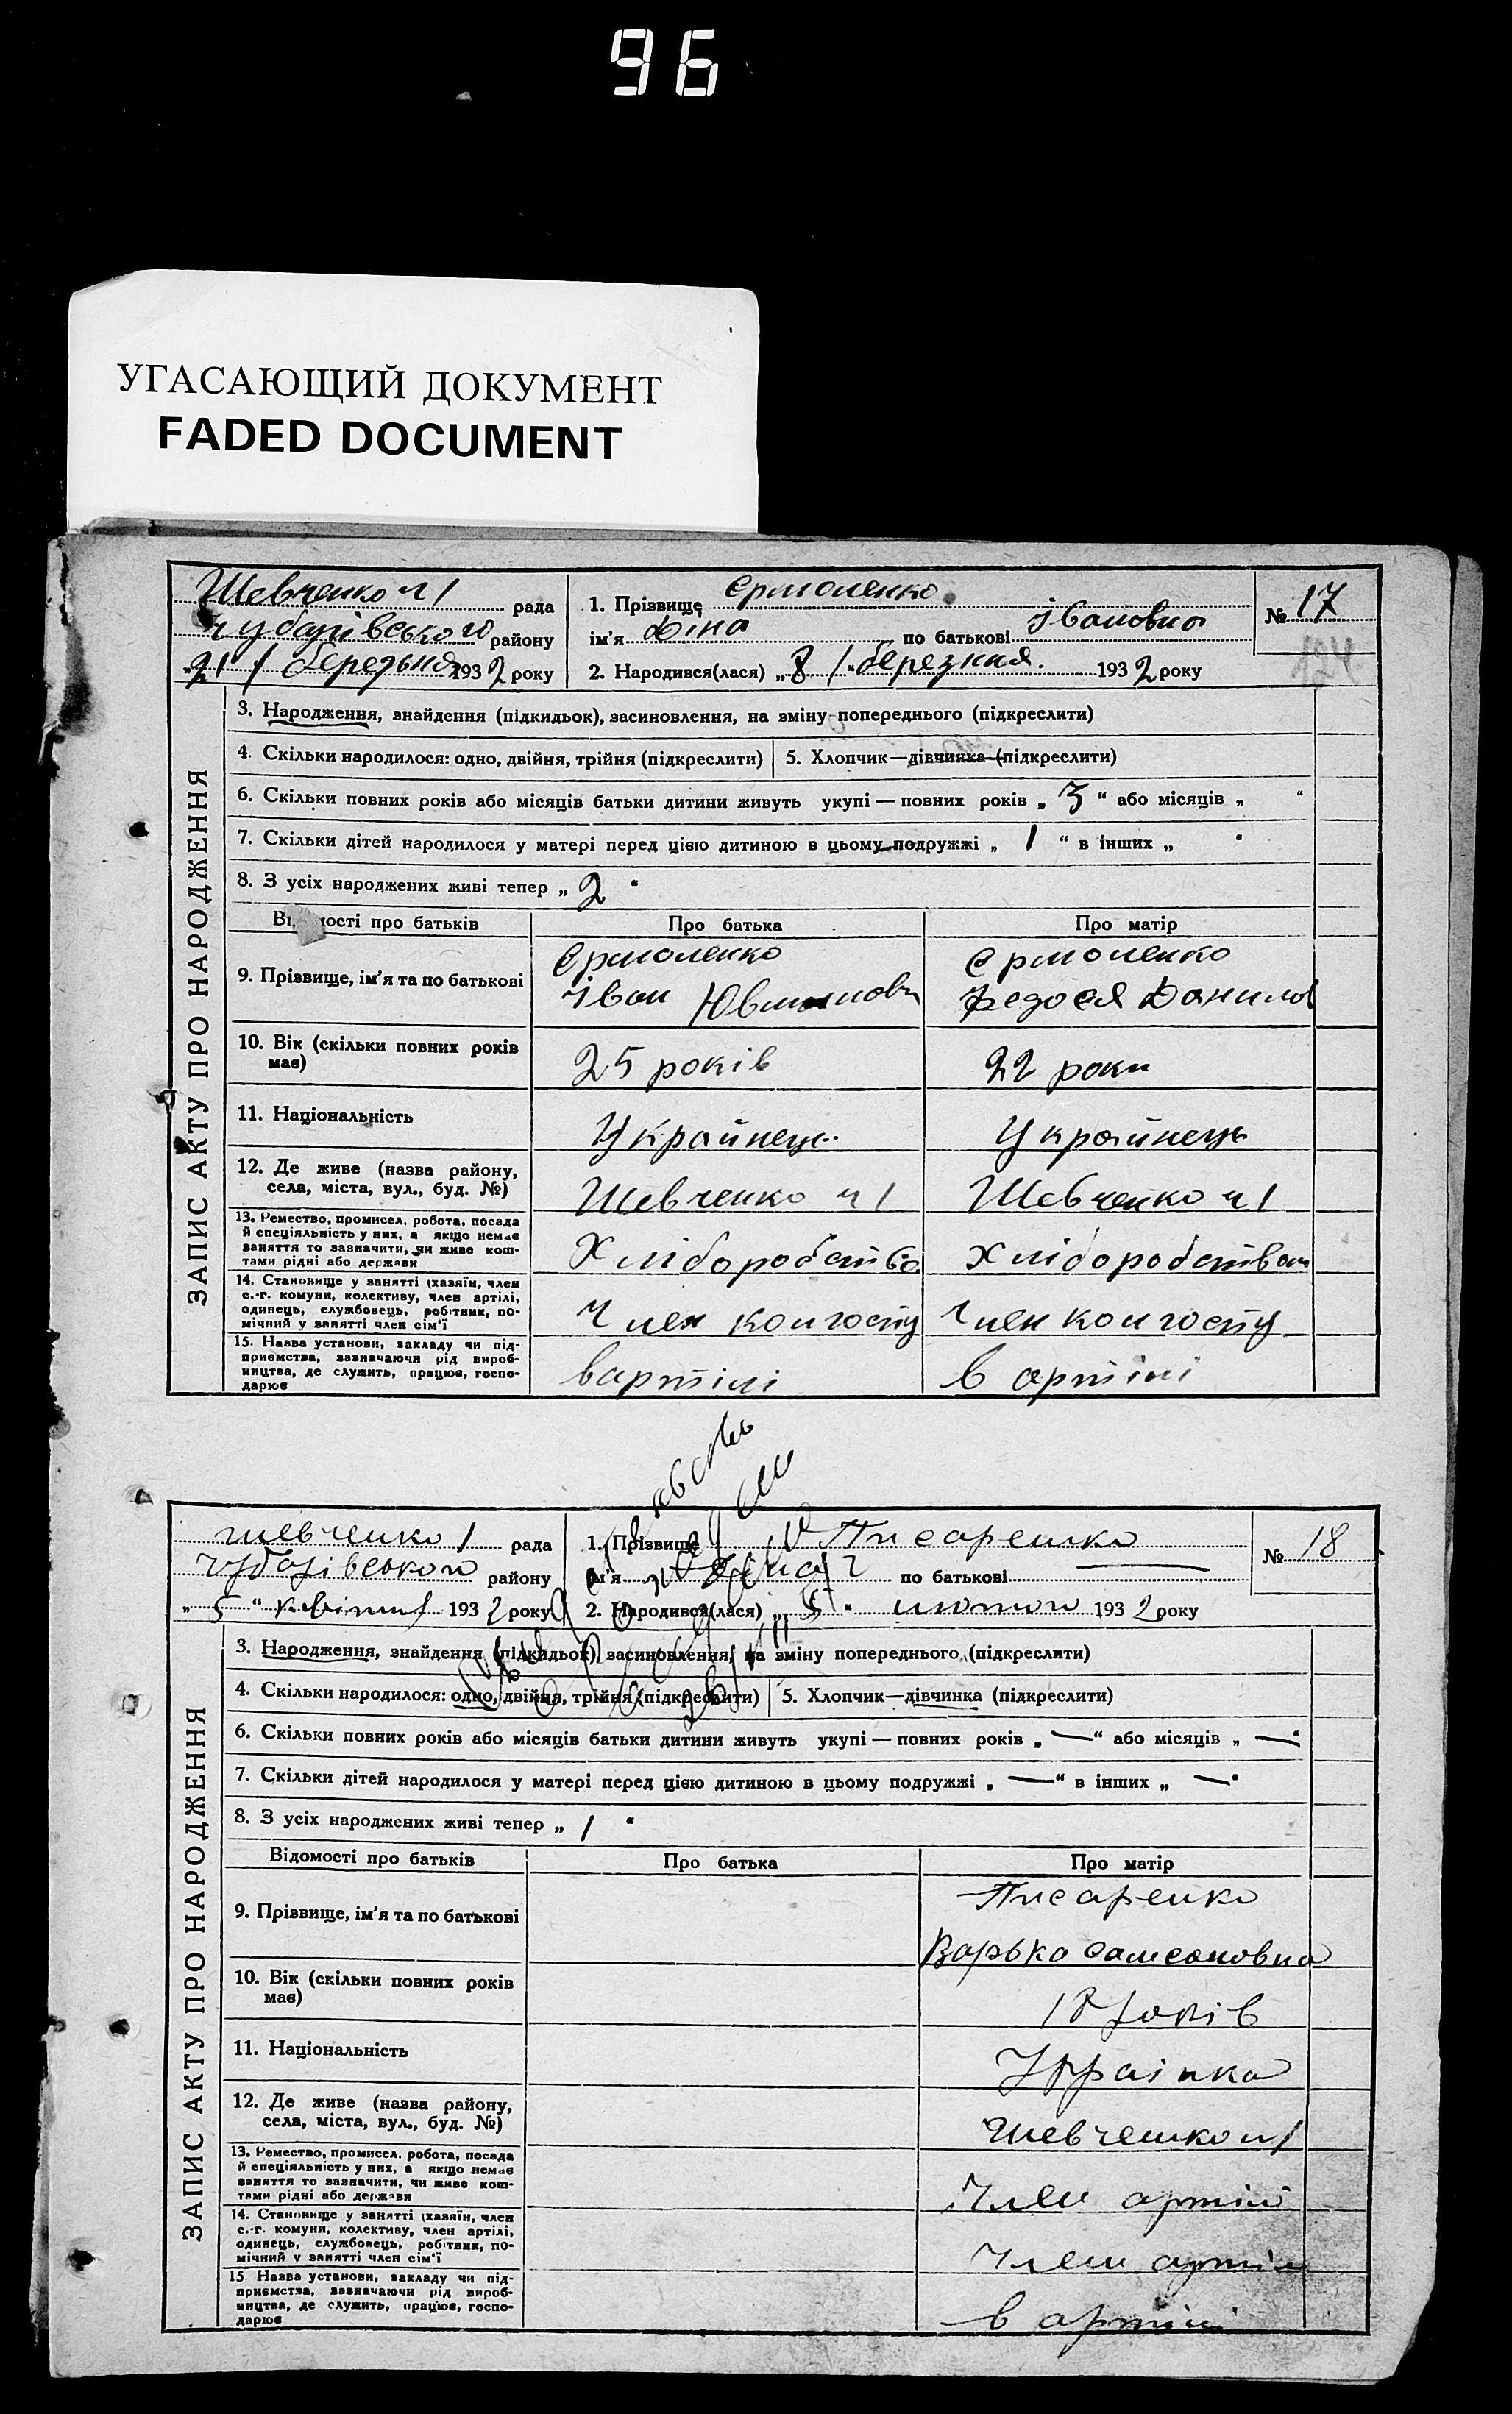 96
УГАСАЮЩИЙ ДОКУМЕНТ
FADED DOCUMENT
ЗАПИС АКТУ ПРО НАРОДЖЕННЯ
Шевченко ч 1 рада
Чубарівського району
„21 березьня 1932 року
1. Прізвище Єрмоленко
ім'я Діна по батькові Івановна
2. Народився(лася) „8 “ березня. 1932 року
№ 17
3. Народження, знайдення (підкидьок), засиновлення, на зміну попереднього (підкреслити)
4. Скільки народилося: одно, двійня, трійня (підкреслити) 5. Хлопчик—дівчинка (підкреслити)
6. Скільки повних років або місяців батьки дитини живуть укупі — повних років „ 3 “ або місяців „ “
7. Скільки дітей народилося у матері перед цією дитиною в цьому подружжі „ 1 “ в інших „ “
8. З усіх народжених живі тепер „ 2 “
Відомості про батьків Про батька Про матір
9. Прізвище, ім'я та по батькові
Єрмоленко
Іван
Єрмоленко
Федося Данилов
10. Вік (скільки повних років має)
25 років 22 роки
11. Національність
Українець Українець
12. Де живе (назва району,
села, міста, вул., буд. №)
Шевченко ч 1 Шевченко ч 1
13. Ремество, промисел, робота, посада
й спеціяльність у них, а якщо немає
заняття то зазначити, чи живе кош-
тами рідні або держави
Хліборобство Хліборобством
14. Становище у занятті (хазяїн, член
с.-г. комуни, колективу, член артілі,
одинець, службовець, робітник, по-
мічний у занятті член сім'ї
Член колгоспу Член колгоспу
15. Назва установи, закладу чи під-
приємства, зазначаючи рід вироб-
ництва, де служить, працює, госпо-
дарює
в артілі в артілі
ЗАПИС АКТУ ПРО НАРОДЖЕННЯ
Шевченко 1 рада
Чубарівського району
„ 5 “ квітня 1932 року
1. Прізвище Писаренко
ім'я по батькові —
2. Народився(лася) „ 5 “ лютого 1932 року
№ 18
3. Народження, знайдення (підкидьок), засиновлення, на зміну попереднього (підкреслити)
4. Скільки народилося: одно, двійня, трійня (підкреслити) 5. Хлопчик—дівчинка (підкреслити)
6. Скільки повних років або місяців батьки дитини живуть укупі — повних років „ — “ або місяців „ — “
7. Скільки дітей народилося у матері перед цією дитиною в цьому подружжі „ — “ в інших „ — “
8. З усіх народжених живі тепер „ 1 “
Відомості про батьків Про батька Про матір
9. Прізвище, ім'я та по батькові
Писаренко
Варька Самсоновна
10. Вік (скільки повних років має)
18 років
11. Національність
Українка
12. Де живе (назва району,
села, міста, вул., буд. №)
Шевченко ч 1
13. Ремество, промисел, робота, посада
й спеціяльність у них, а якщо немає
заняття то зазначити, чи живе кош-
тами рідні або держави
Член артілі
14. Становище у занятті (хазяїн, член
с.-г. комуни, колективу, член артілі,
одинець, службовець, робітник, по-
мічний у занятті член сім'ї
Член артіли
15. Назва установи, закладу чи під-
приємства, зазначаючи рід вироб-
ництва, де служить, працює, госпо-
дарює
в артілі